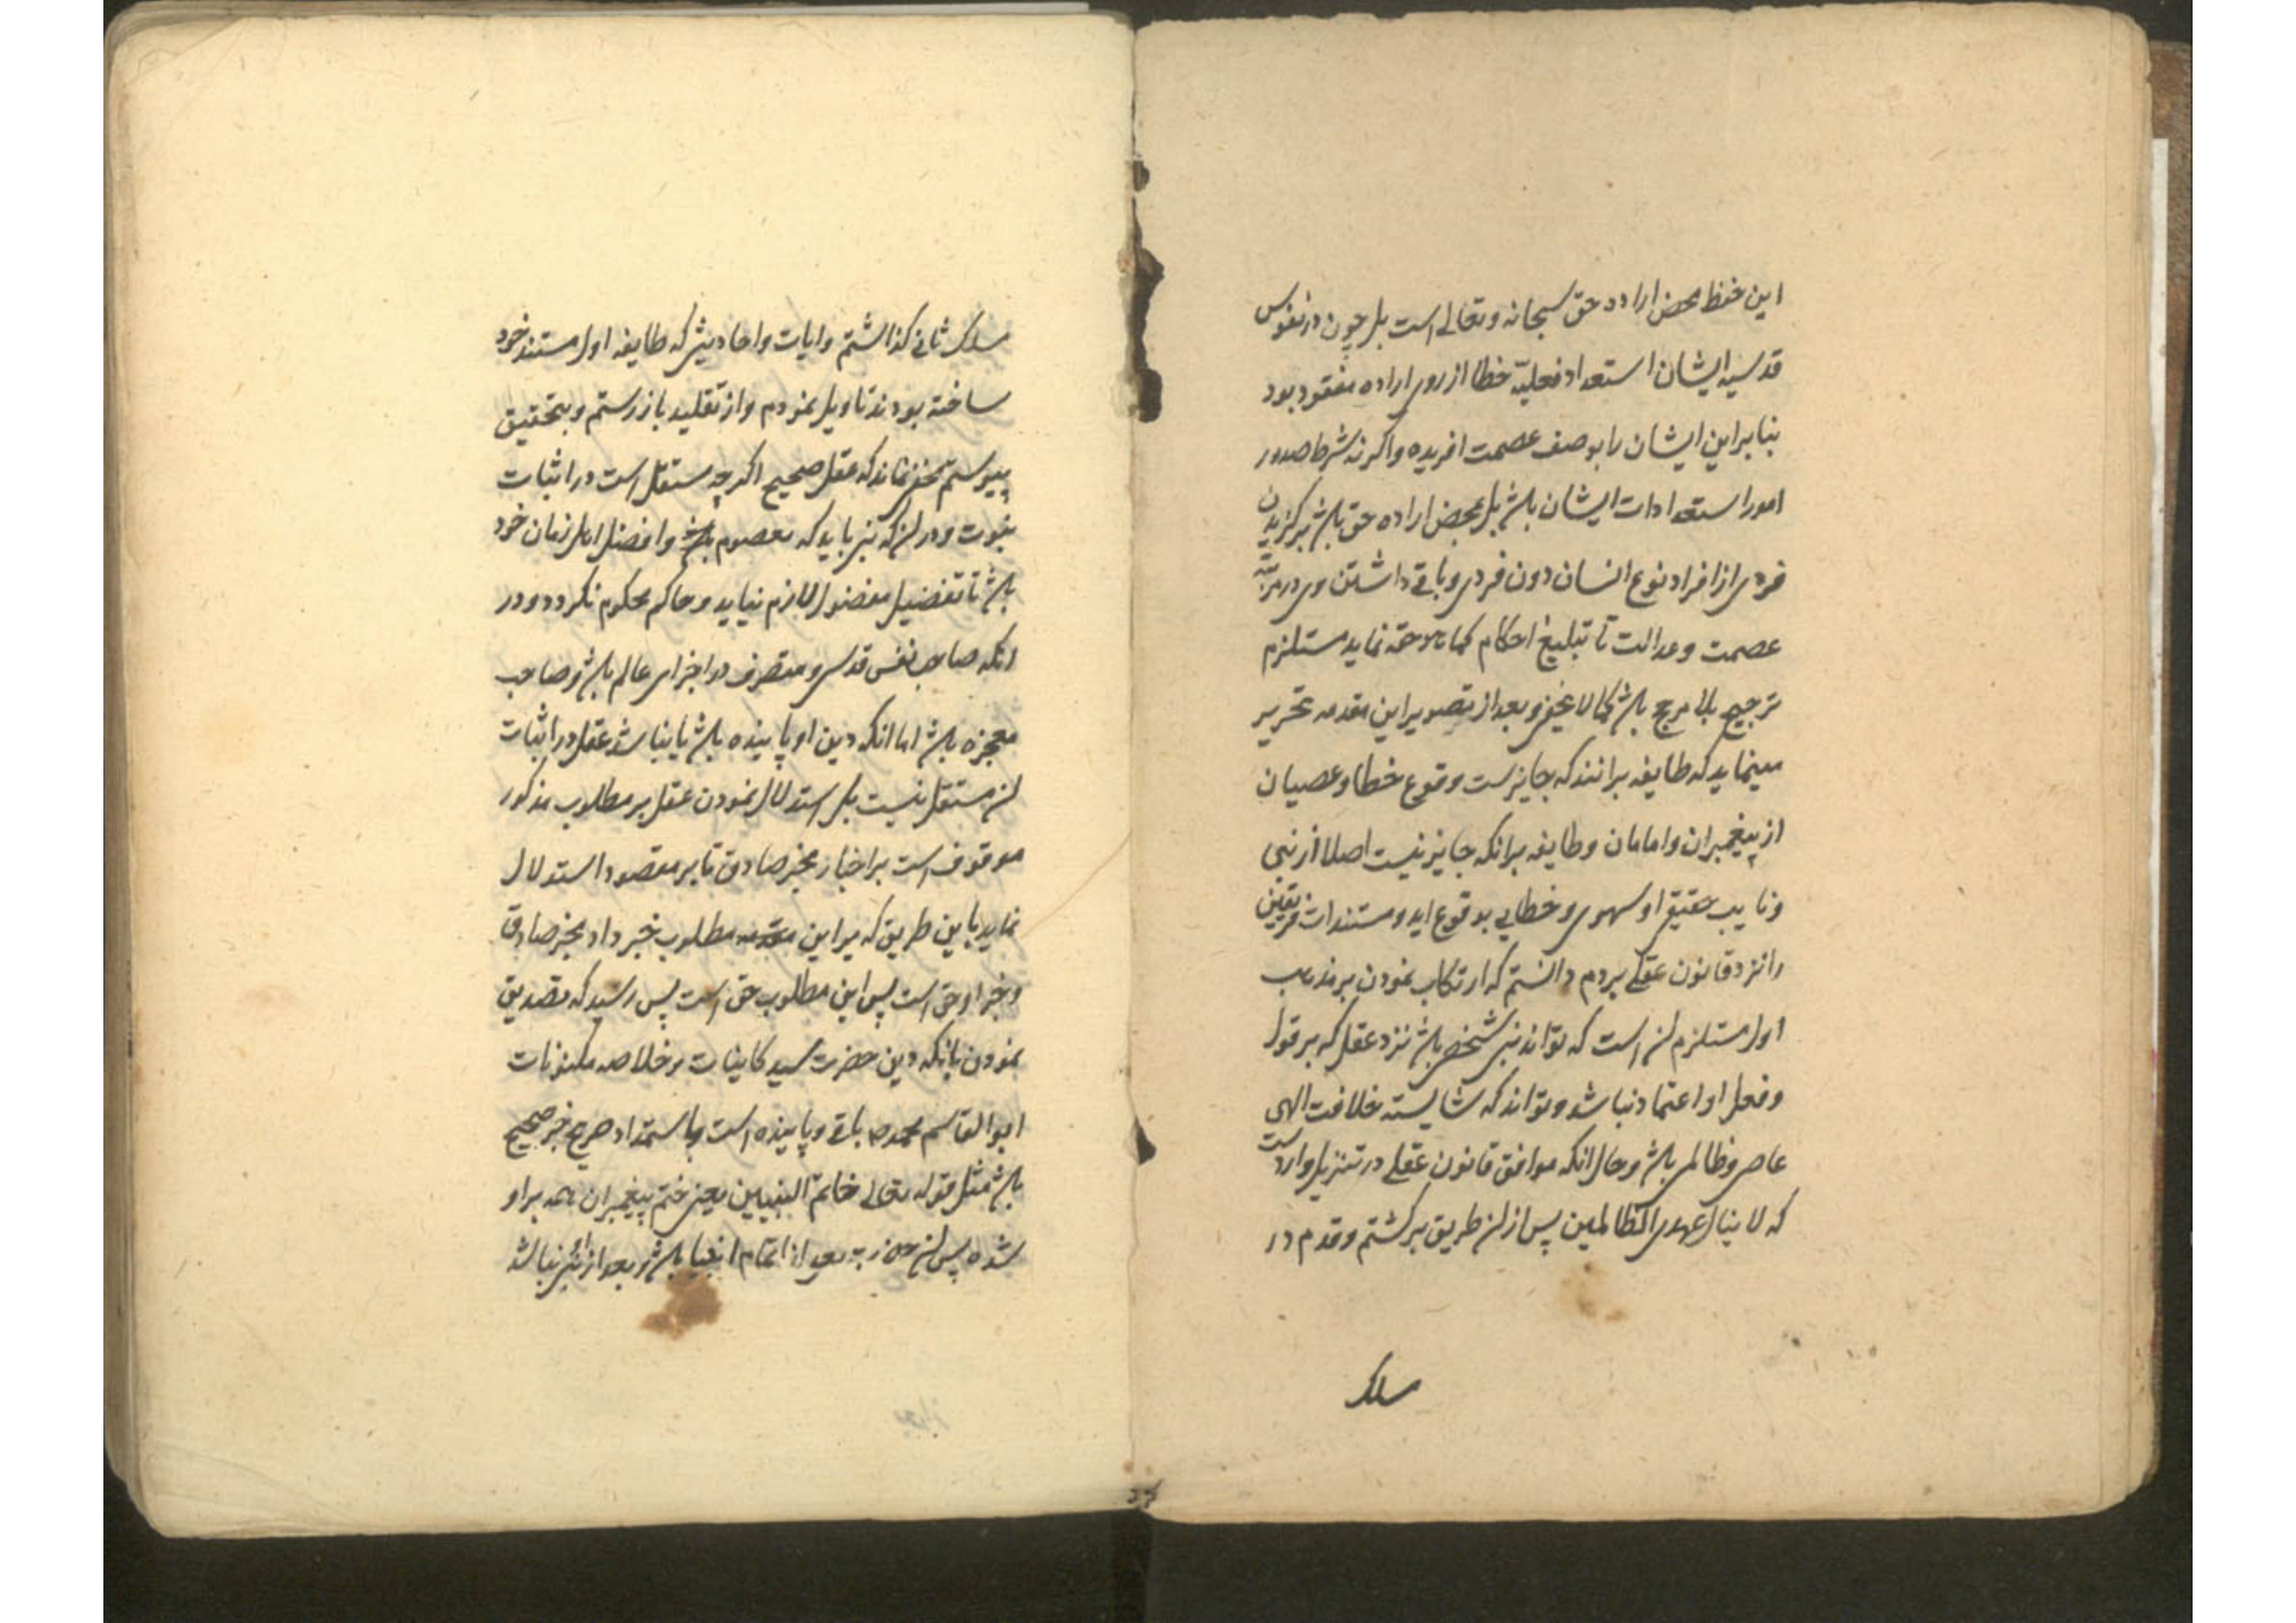 این حفظ محض اراده حق سبحانه وتعالی است بل چون در نفوس
قدسیه ایشان استعداد فعلیّه خطا از روی اراده مفقود بود
بنابراین ایشان را بوصف عصمت افریده واکرنه شرط صدور
امور استعدادات ایشان باشد بل بمحض اراده حق باشد برکزیدن
فردی از افراد نوع انسان دون فردی وباقی داشتن وی در مرتبه
عصمت وعدالت تا تبلیغ احکام کما هو حقه نماید مستلزم
ترجیح بلا مرجح باشد کما لا یخفی وبعد از تصویر این مقدمه تحریر
مینماید که طایفه برانند که جایزست وقوع خطا وعصیان
از پیغمبران وامامان وطایفه برانکه جایز نیست اصلا از نبی
ونایب حقیقی او سهوی وخطایی بوقوع اید ومستندات فریقین
را نزد قانون عقلی بردم دانستم که ارتکاب نمودن بر مذهب
اول مستلزم ان است که تواند نبی شخصی باشد نزد عقل که بر قول
وفعل او اعتماد نباشد وتواند که شایسته خلافت الهی
عاصی وظالمی باشد وحال انکه موافق قانون عقلی در تنزیل وارد است
که لا ینال عهدی الظالمین پس از ان طریق برکشتم وقدم در
سلک
سلک ثانی کذاشتم وایات واحادیثی که طایفه اول مستند خود
ساخته بودند تاویل نمودم واز تقلید باز رستم وبتحقیق
پیوستم مخفی نماند که عقل صحیح اکرچه مستقل است در اثبات
نبوت ودر ان که نبی باید که معصوم باشد وافضل اهل زمان خود
باشد تا تفضیل مفضول لازم نیاید وحاکم محکوم نکردد ودر
انکه صاحب نفس قدسی ومتصرف در اجزای عالم باشد وصاحب
معجزه باشد اما انکه دین او پاینده باشد یا نباشد عقل در اثبات
ان مستقل نیست بل استدلال نمودن عقل بر مطلوب مذکور
موقوف است بر اخبار مخبر صادق تا بر مقصود استدلال
نماید باین طریق که براین مطلوب خبر داد مخبر صادق
وخبر او حق است پس این مطلوب حق است پس رسید که تصدیق
نمودن بانکه دین حضرت سید کاینات وخلاصه مکنونات
ابوالقاسم محمد ص باقی وپاینده است باستمداد صریح خبر صحیح
باشد مثل قوله تعالی خاتم النبیین یعنی ختم پیغمبران همه براو
شده پس ان حضرت بعد از تمام انبیا باشد وبعد از او نبی نباشد